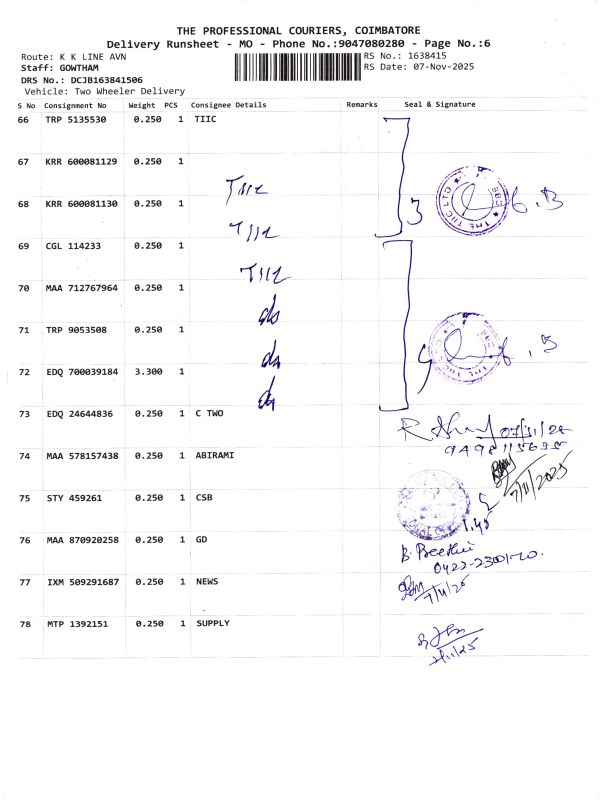 THE PROFESSIONAL COURIERS, COIMBATORE
Delivery Runsheet - MO - Phone No.:9047080280 - Page No.:6
Route: K K LINE AVN RS No.: 1638415
Staff: GOWTHAM RS Date: 07-Nov-2025
DRS No.: DCJB163841506
Vehicle: Two Wheeler Delivery
S No Consignment No Weight PCS Consignee Details Remarks Seal & Signature
66 TRP 5135530 0.250 1 TIIC
67 KRR 600081129 0.250 1
TIIC
68 KRR 600081130 0.250 1 3
TIIC
THE TIIC LTD
69 CGL 114233 0.250 1
TIIC
70 MAA 712767964 0.250 1
do
71 TRP 9053508 0.250 1
do
72 EDQ 700039184 3.300 1
do
73 EDQ 24644836 0.250 1 C TWO
07/11/25
9498115635
74 MAA 578157438 0.250 1 ABIRAMI
7/11/2025
75 STY 459261 0.250 1 CSB
1.45
76 MAA 870920258 0.250 1 GD
B. Preethi
0422-2300120.
77 IXM 509291687 0.250 1 NEWS
7/11/25
78 MTP 1392151 0.250 1 SUPPLY
7/11/25